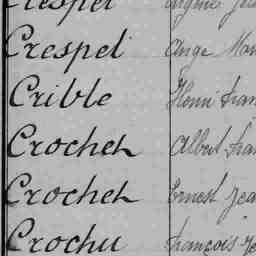 Crespel
Crespel Ange
Crible Henri
Crochet Albert
Crochet Ernest
Crochu François